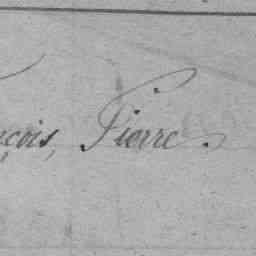 nçois, Pierre.